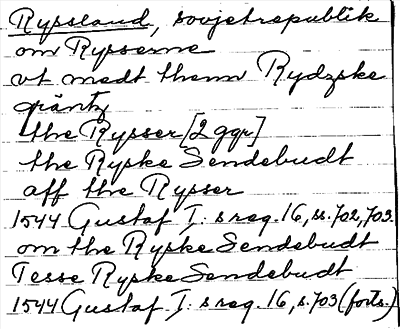 Ryssland, sovjetrepublik
om Rysserne
vt medt thenn Rydzske
gräntz
the Rysser [2 ggr]
the Ryske Sendebudt
aff the Rysser
1544 Gustaf I: s reg. 16, ss. 702, 703.
om the Ryske Sendebudt
Tesse Ryske Sendebudt
1544 Gustaf I: s reg. 16, s. 703 (forts.)